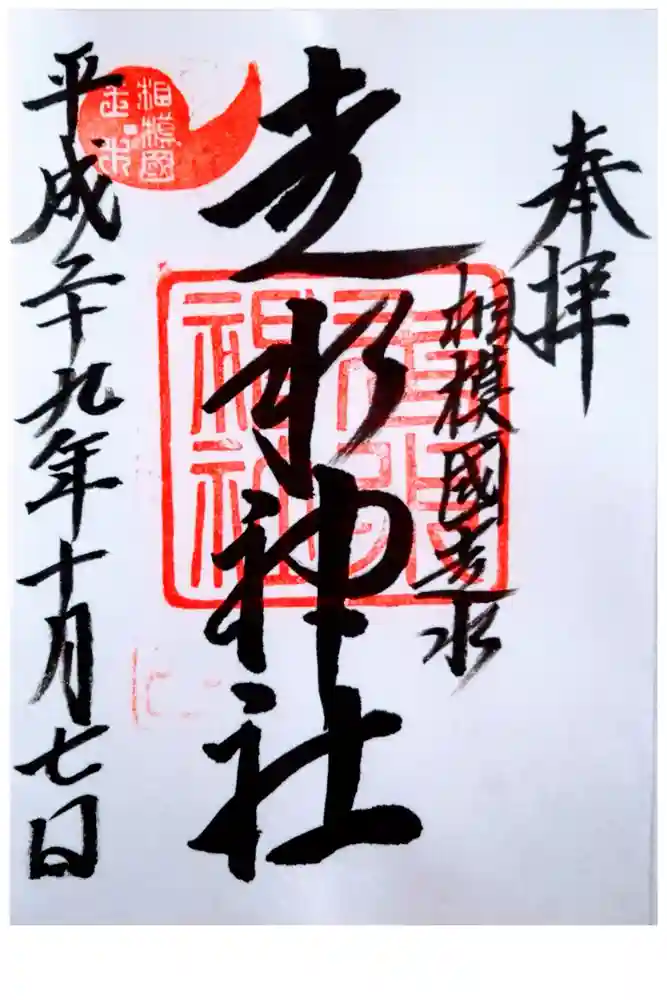 奉拝
相模國走水
走水神社
平成二十九年十月七日
相模國
走水
走水
神社